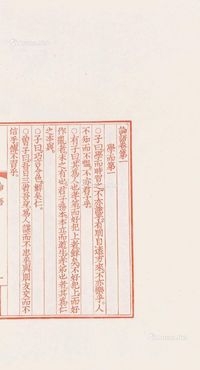 論語卷第一
學而第一
○子曰學而時習之不亦說乎有朋自遠方來不亦樂乎人
不知而不慍不亦君子乎
○有子曰其爲人也孝弟而好犯上者鮮矣不好犯上而好
作亂者未之有也君子務本本立而道生孝弟也者其爲仁
之本與
○子曰巧言令色鮮矣仁
○曾子曰吾日三省吾身爲人謀而不忠乎與朋友交而不
信乎傳不習乎